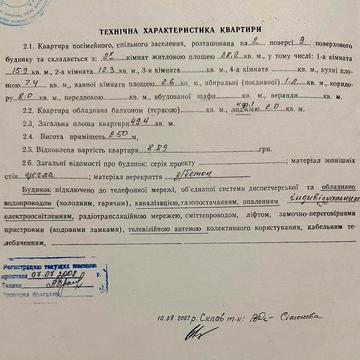 ТЕХНІЧНА ХАРАКТЕРИСТИКА КВАРТИРИ
2.1. Квартира посімейного, спільного заселення, розташована на 2 поверсі 9 поверхового
будинку та складається з 2х кімнат житловою площею 28.2 кв. м, у тому числі: 1-а кімната
15.9 кв. м, 2-а кімната 12.3 кв. м, 3-я кімната кв. м, 4-а кімната кв. м, кухні пло-
щею 7.4 кв. м, ванної кімнати площею 2.6 кв. м, вбиральні (поєднаної) 1.2 кв. м, коридо-
ру 8.0 кв. м, передпокою кв. м, вбудованої шафи кв. м, веранди кв. м.
2.2. Квартира обладнана балконом (терасою) кв. м, лоджією 2.0 кв. м.
2.3. Загальна площа квартири 49.4 кв. м.
2.4. Висота приміщень 2.50 м.
2.5. Відновлена вартість квартири 8.89 грн.
2.6. Загальні відомості про будинок: серія проекту ; матеріал зовнішніх
стін цегла ; матеріал перекриття з/бетон
Будинок підключено до телефонної мережі, об'єднаної системи диспетчерської та обладнано
водопроводом (холодним, гарячим), каналізацією, газопостачанням, опаленням індивідуальним
електроосвітленням, радіотрансляційною мережею, сміттєпроводом, ліфтом, замочно-переговірними
пристроями (кодовими замками), телевізійною антеною колективного користування, кабельним те-
лебаченням,
07.07.2008
10.09.2007р. Склав т-к: